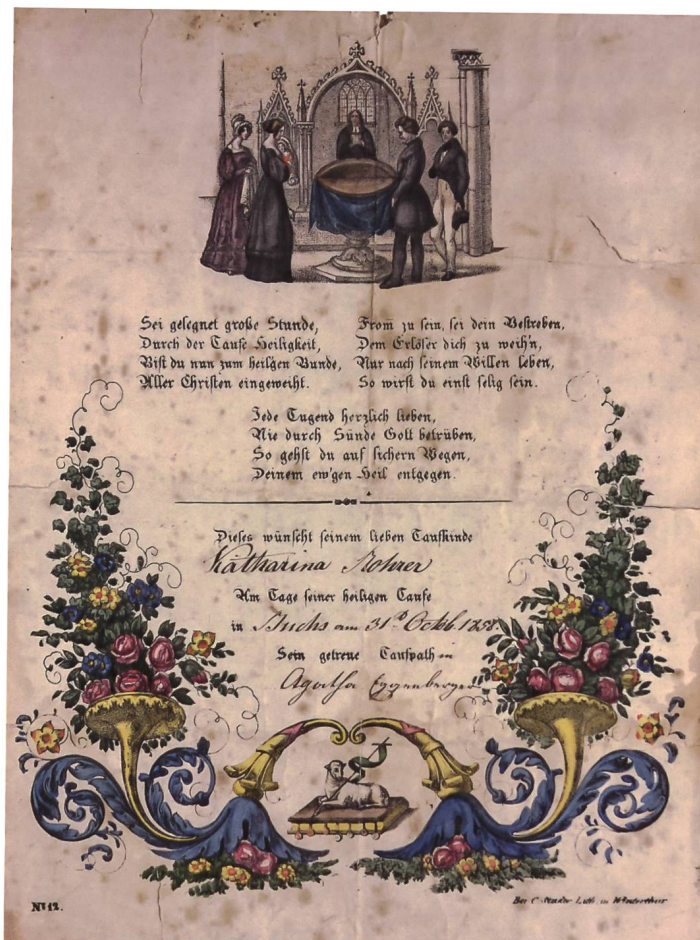 Sei gesegnet große Stunde,
Durch der Taufe Heiligkeit,
Bist du nun zum heil'gen Bunde,
Aller Christen eingeweiht.
From̄ zu sein, sei dein Bestreben,
Dem Erlöser dich zu weih'n,
Nur nach seinem Willen leben,
So wirst du einst selig sein.
Jede Tugend herzlich lieben,
Nie durch Sünde Gott betrüben,
So gehst du auf sichern Wegen,
Deinem ew'gen Heil entgegen.
Dieses wünscht seinem lieben Taufkinde
Katharina Rohrer
Am Tage seiner heiligen Taufe
in Buchs am 31. Octob 1858
Sein getreue Taufpathin
Agatha Eggenberger
No 12.
Bei C. Studer Lith. in Winterthur